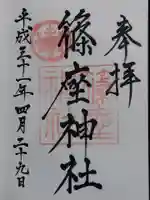 奉拝
篠座神社
平成三十一年四月二十九日